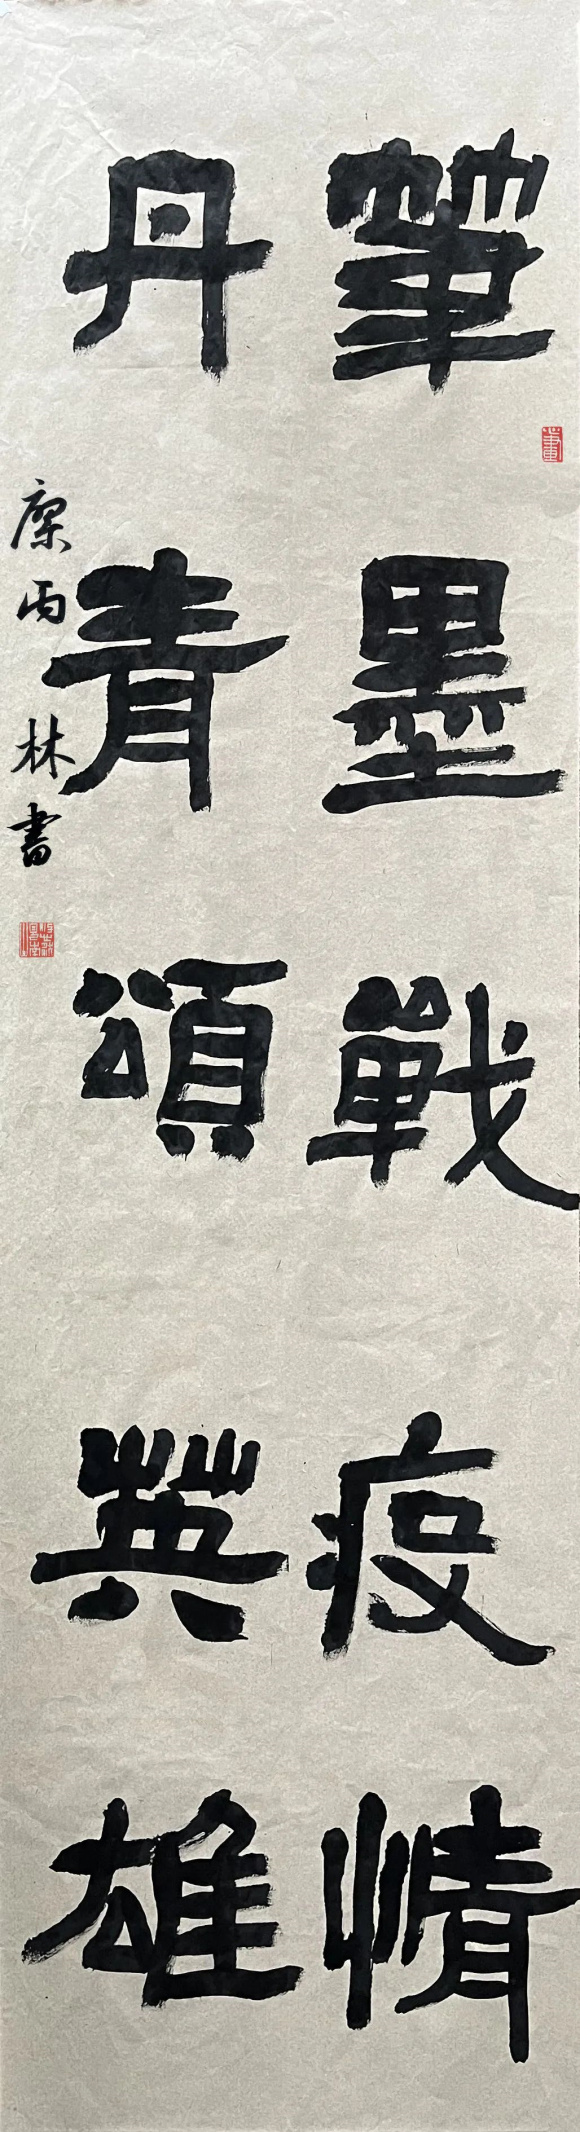 筆墨戰疫情
丹青頌英雄
丙林書